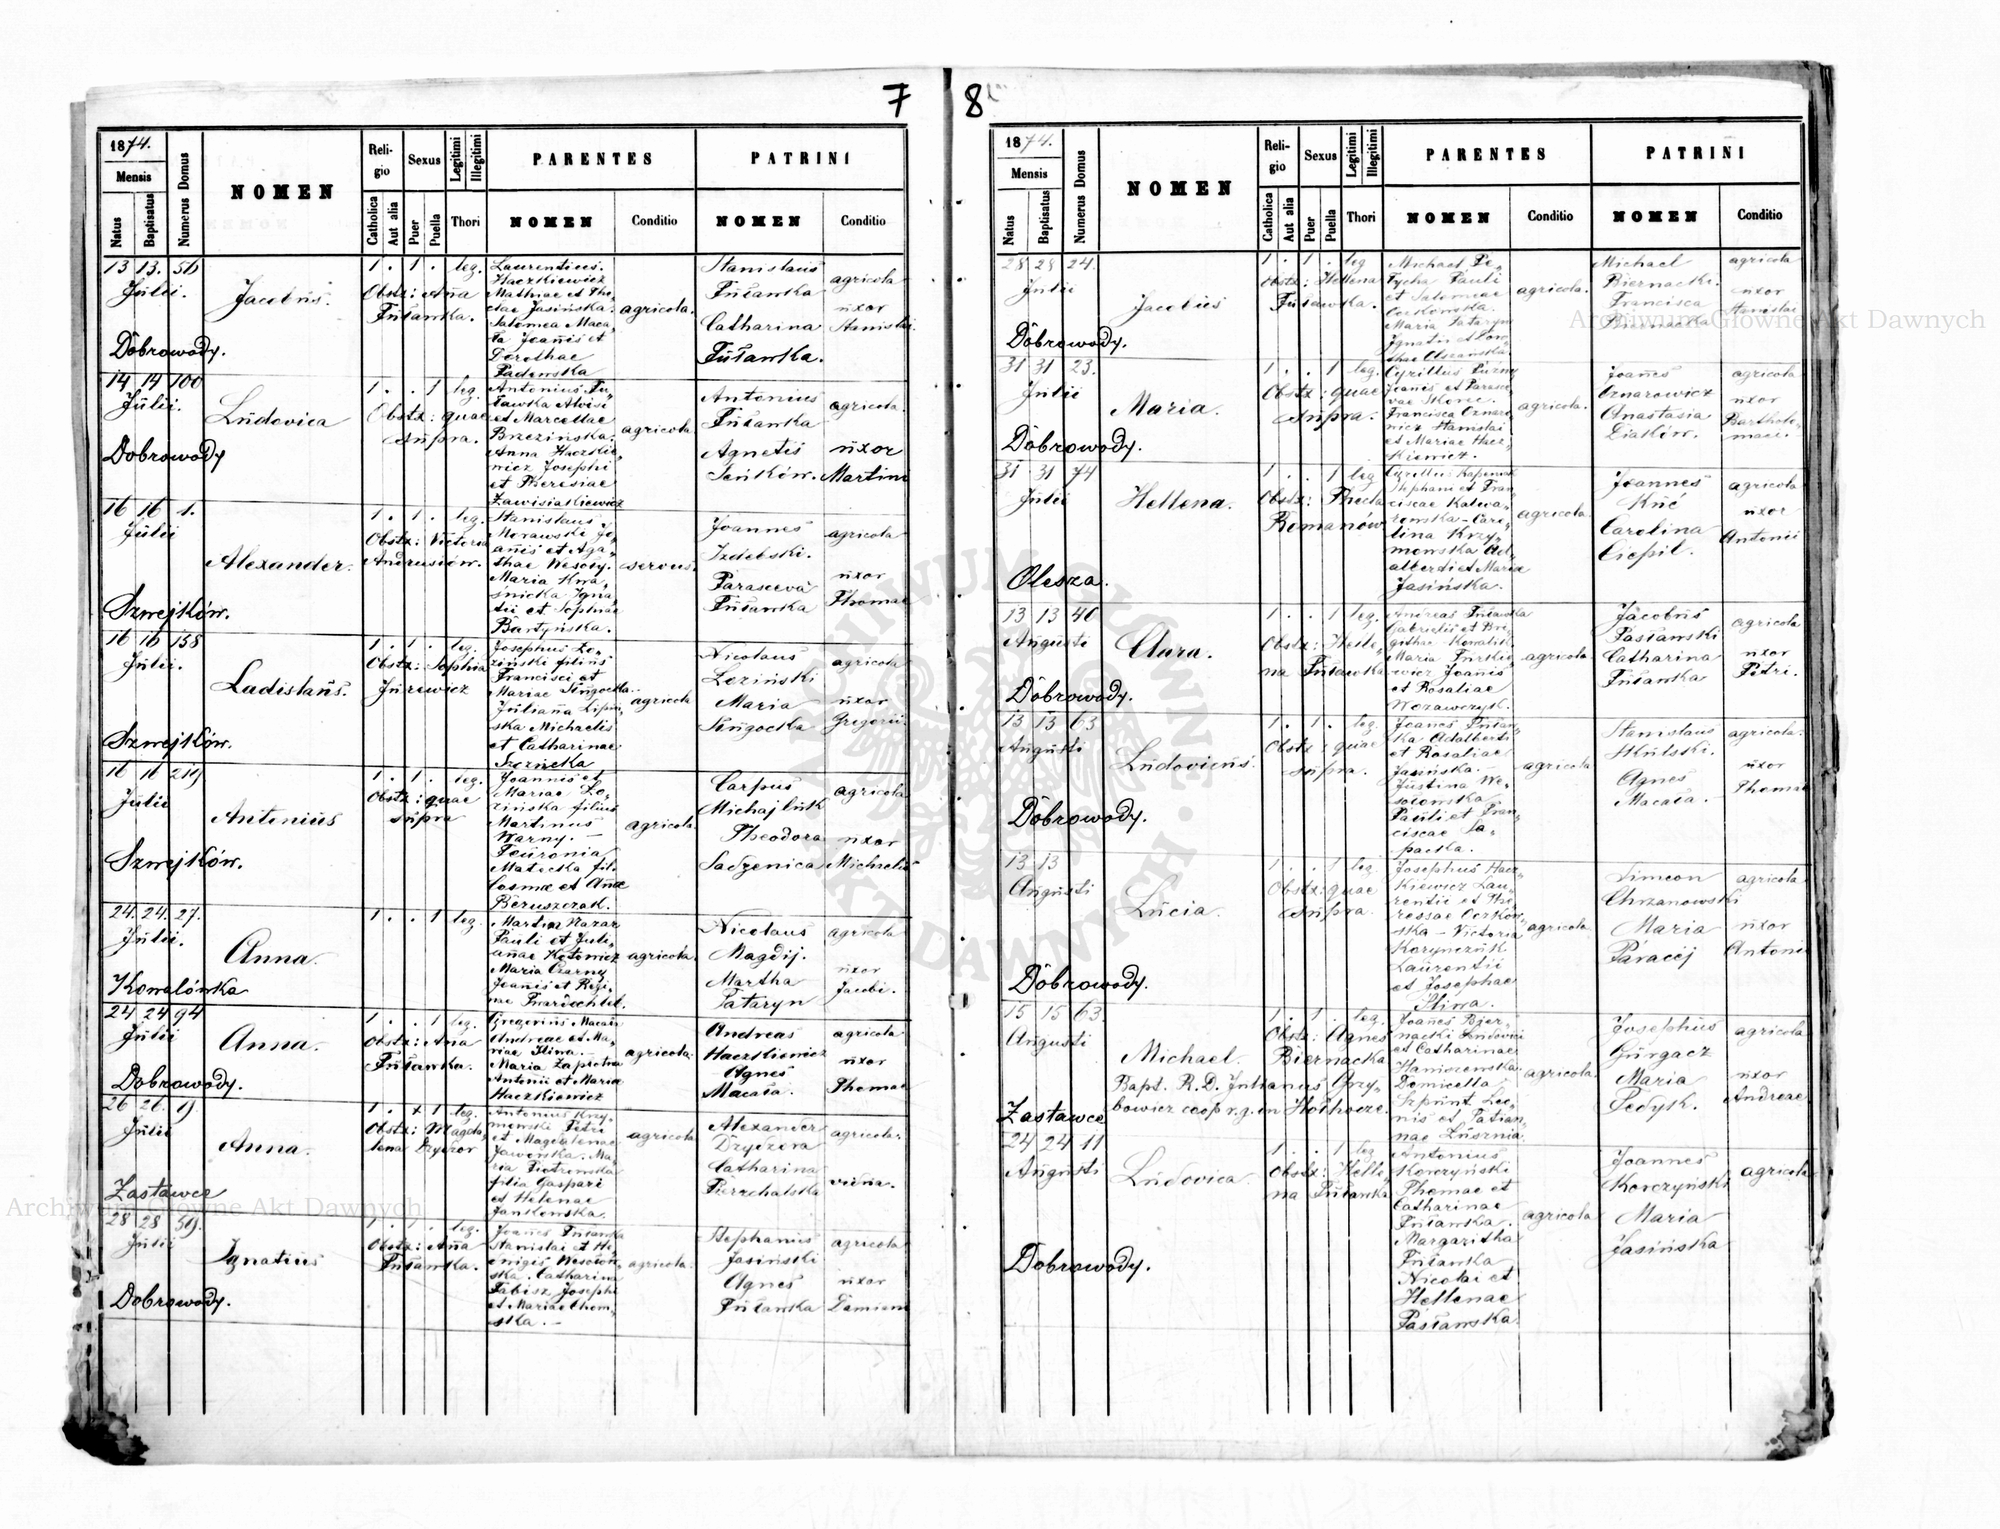 7
1874.
Mensis
Natus
Baptisatus
Numerus Domus
NOMEN
Religio
Catholica
Aut alia
Sexus
Puer
Puella
Legitimi
Illegitimi
Thori
PARENTES
NOMEN
Conditio
PATRINI
NOMEN
Conditio
13 13. 56
Julii.
Dobrowody.
Jacobus.
1 . 1 . leg.
Obstx: Anna
Fuławka.
Laurentius
Haczkiewicz
Mathiae et The-
clae Jasińska.
Salomea Maca-
ła Joannis et
Dorothae
Padewska
agricola.
Stanislaus
Fuławka
Catharina
Fuławka.
agricola
uxor
Stanislai
14 14 100
Julii.
Dobrowody
Ludovica
1 . . 1 leg.
Obstx: quae
supra.
Antonius Fu-
ławka Aloisi
et Marcellae
Brzezińska.
Anna Haczkie-
wicz Josephi
et Theresiae
Zawisiakiewicz
agricola
Antonius
Fuławka
Agnetis
Seńków.
agricola.
uxor
Martini
16 16 1.
Julii
Szwejków.
Alexander.
1 . 1 . leg.
Obstx: Victoria
Andrusiów.
Stanislaus
Morawski Jo-
annis et Aga-
thae Wesoły.
Maria Kwa-
śnicka Igna-
tii et Sophiae
Bartyńska.
servus.
Joannes
Izdebski.
Parasceva
Fuławka
agricola
uxor
Thomae
16 16 158
Julii.
Szwejków.
Ladislaus.
1 . 1 . leg.
Obstx: Sophia
Jurewicz
Josephus Lo-
ziński filius
Francisci et
Mariae Sługocka.
Julianna Lipiń-
ska Michaelis
et Catharinae
Szczucka
agricola
Nicolaus
Loziński
Maria
Sługocka
agricola
uxor
Gregorii
16 16 219
Julii
Szwejków.
Antonius
1 . 1 . leg.
Obstx: quae
supra
Joannis et
Mariae Lo-
zińska filius
Martinus
Warny. —
Feuronia
Matecka fil.
Cosmae et Annae
Beruszczak.
agricola
Carpus
Michajluk
Theodora
Sadzenica
agricola
uxor
Michaelis
24. 24. 27.
Julii.
Kowalówka
Anna.
1 . . 1 leg.
Martin Nazar
Pauli et Juli-
annae Kotowicz
Maria Czarny
Joannis et Regi-
nae
agricola.
Nicolaus
Magdij.
Martha
Tataryn
agricola
uxor
Jacobi.
24 24 94
Julii
Dobrowody.
Anna.
1 . . 1 leg.
Obstx: Anna
Fuławka.
Gregorius Macała
Andreae et Ma-
riae Sliwa.
Maria Zaplotna
Antonii et Maria
Haczkiewicz
agricola.
Andreas
Haczkiewicz
Agnes
Macała.
agricola
uxor
Thomae
26 26. 9.
Julii
Zastawce
Anna.
1 . + 1 leg.
Obstx: Magda-
lena Dryczor
Antonius Krzy-
mowski Petri
et Magdalenae
Jaworska. Ma-
ria Piotrowska
filia Gaspari
et Helenae
Jankowska.
agricola
Alexander
Dryczera
Catharina
Pierzchalska
agricola.
vidua.
28 28 59.
Julii
Dobrowody.
Ignatius
1 . 1 . leg.
Obstx: Anna
Fuławka.
Joannes Fuławka
Stanislai et He-
wigis Wesołow-
ska. Catharina
Fabisz Josephi
et Mariae Chom-
ska. —
agricola.
Stephanus
Jasiński
Agnes
Fuławka
agricola
uxor
Damiani
8
1874.
Mensis
Natus
Baptisatus
Numerus Domus
NOMEN
Religio
Catholica
Aut alia
Sexus
Puer
Puella
Legitimi
Illegitimi
Thori
PARENTES
NOMEN
Conditio
PATRINI
NOMEN
Conditio
28 28 24.
Julii
Dobrowody.
Jacobus
1 . 1 . leg
Obstx: Hellena
Fuławka.
Michael Pe-
tycha Pauli
et Salomeae
Corkowska.
Maria Tataryn
Ignatii et Doro-
thae Olszańska.
agricola.
Michael
Biernacki.
Francisca
Biernacka
agricola
uxor
Stanislai
31 31 23.
Julii
Dobrowody.
Maria.
1 . . 1 leg.
Obstx: quae
supra.
Cyrillus
Joannis et Parasce-
vae Skorec.
Francisca Oznaro-
wicz Stanislai
et Mariae Hacz-
kiewicz.
agricola.
Joannes
Oznarowicz
Anastasia
Diaków.
agricola
uxor
Bartholo-
maei.
31 31 74
Julii
Olesza.
Hellena.
1 . . 1 leg
Obstx: Thecla
Romanów.
Cyrillus
Stephani et Fran-
ciscae Kalwa-
rowska - Caro-
lina Krzy-
mowska Ad-
alberti et Maria
Jasińska.
agricola.
Joannes
Kuć
Carolina
Ciepil.
agricola
uxor
Antonii
13 13 46
Augusti
Dobrowody.
Clara.
1 . . 1 leg.
Obstx: Helle-
na Fuławka
Andreas Fuławka
Gabrielis et Bri-
githae Kowalik
Maria Turkie-
wicz Joannis
et Rosaliae
Wozawczyk.
agricola
Jacobus
Pasławski
Catharina
Fuławka
agricola
uxor
Petri.
13 13 63
Augusti
Dobrowody.
Ludovicus.
1 . 1 . leg.
Obstx: quae
supra.
Joannes Fuław-
ka Adalberti
et Rosaliae
Jasińska. —
Justina We-
sołowska
Pauli et Fran-
ciscae Sa-
packa.
agricola
Stanislaus
Skulski.
Agnes
Macała.
agricola.
uxor
Thomae
13 13
Augusti
Dobrowody.
Lucia.
1 . . 1 leg
Obstx: quae
supra.
Josephus Hacz-
kiewicz Lau-
rentii et The-
ressae Corkow-
ska — Victoria
Korynczuk
Laurentii
et Josephae
Sliwa.
agricola
Simeon
Chrzanowski
Maria
Paraciej
agricola
uxor
Antonii
15 15 63.
Augusti
Zastawce
Michael.
Bapt. R.D. Julianus Grzy-
bowicz coop r.g. en Hołhocze.
1 . 1 . leg.
Obstx: Agnes
Biernacka
Joannes Bier-
nacki Ludovici
et Catharinae
Haniszewska
Domicella
Szpunt Leo-
nis et Tatian-
nae Luseznia
agricola.
Josephus
Gurgacz
Maria
Fedyk.
agricola
uxor
Andreae
24 24 11
Augusti
Dobrowody.
Ludovica.
1 . . 1 leg
Obstx: Helle-
na Fuławka
Antonius
Korczyński
Thomae et
Catharinae
Fuławka.
Margaritha
Fuławka
Nicolai et
Hellenae
Pasławska
agricola
Joannes
Korczyński
Maria
Jasińska
agricola
Archiwum Główne Akt Dawnych
Archiwum Główne Akt Dawnych
ARCHIWUM GŁÓWNE
AKT DAWNYCH